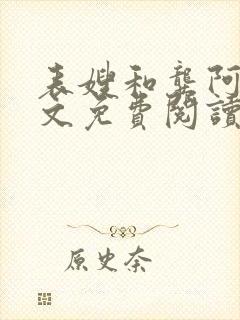 表嫂和龔阿
文免費閱讀
原史奈